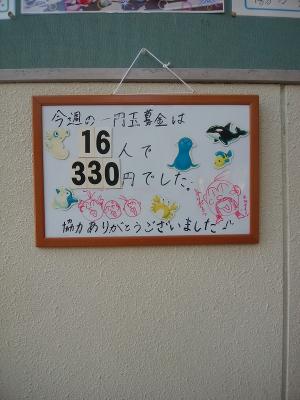 今週の一円玉募金は
16人で
330円でした。
協力ありがとうございました♪